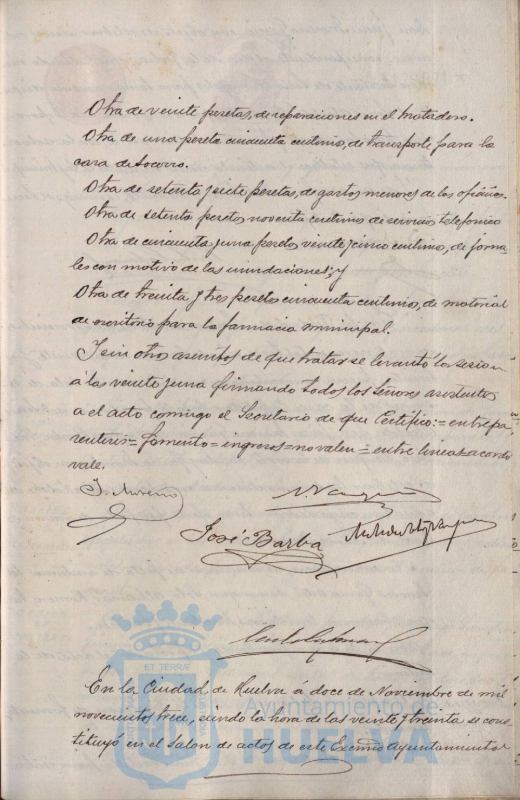 Otra de veinte pesetas, de reparaciones en el Matadero.
Otra de una peseta cincuenta centimo, de transporte para la
casa de socorro.
Otra de setenta y siete pesetas, de gastos menores de las oficinas.
Otra de setenta pesetas noventa centimos de servicio telefonico
Otra de cincuenta y una pesetas veinte y cinco centimo, de jorna-
les con motivo de las inundaciones; y
Otra de treinta y tres pesetas cincuenta centimo, de material
de escritorio para la farmacia municipal.
Y sin otro asuntos de que tratar se levantó la sesion
a las veinte y una firmando todos los Señores asistentes
a el acto comigo el Secretario de que Certifico: = entrepa-
rentesis = fomento = ingresos = no valen = entre lineas = acordo
vale.
J. Moreno
José Barba
ET TERRÆ
En la Ciudad de Huelva á doce de Noviembre de mil
novecientos trece, siendo la hora de las veinte y treinta se cons-
tituyó en el Salon de actos de este Excmo Ayuntamiento
Ayuntamiento de
HUELVA